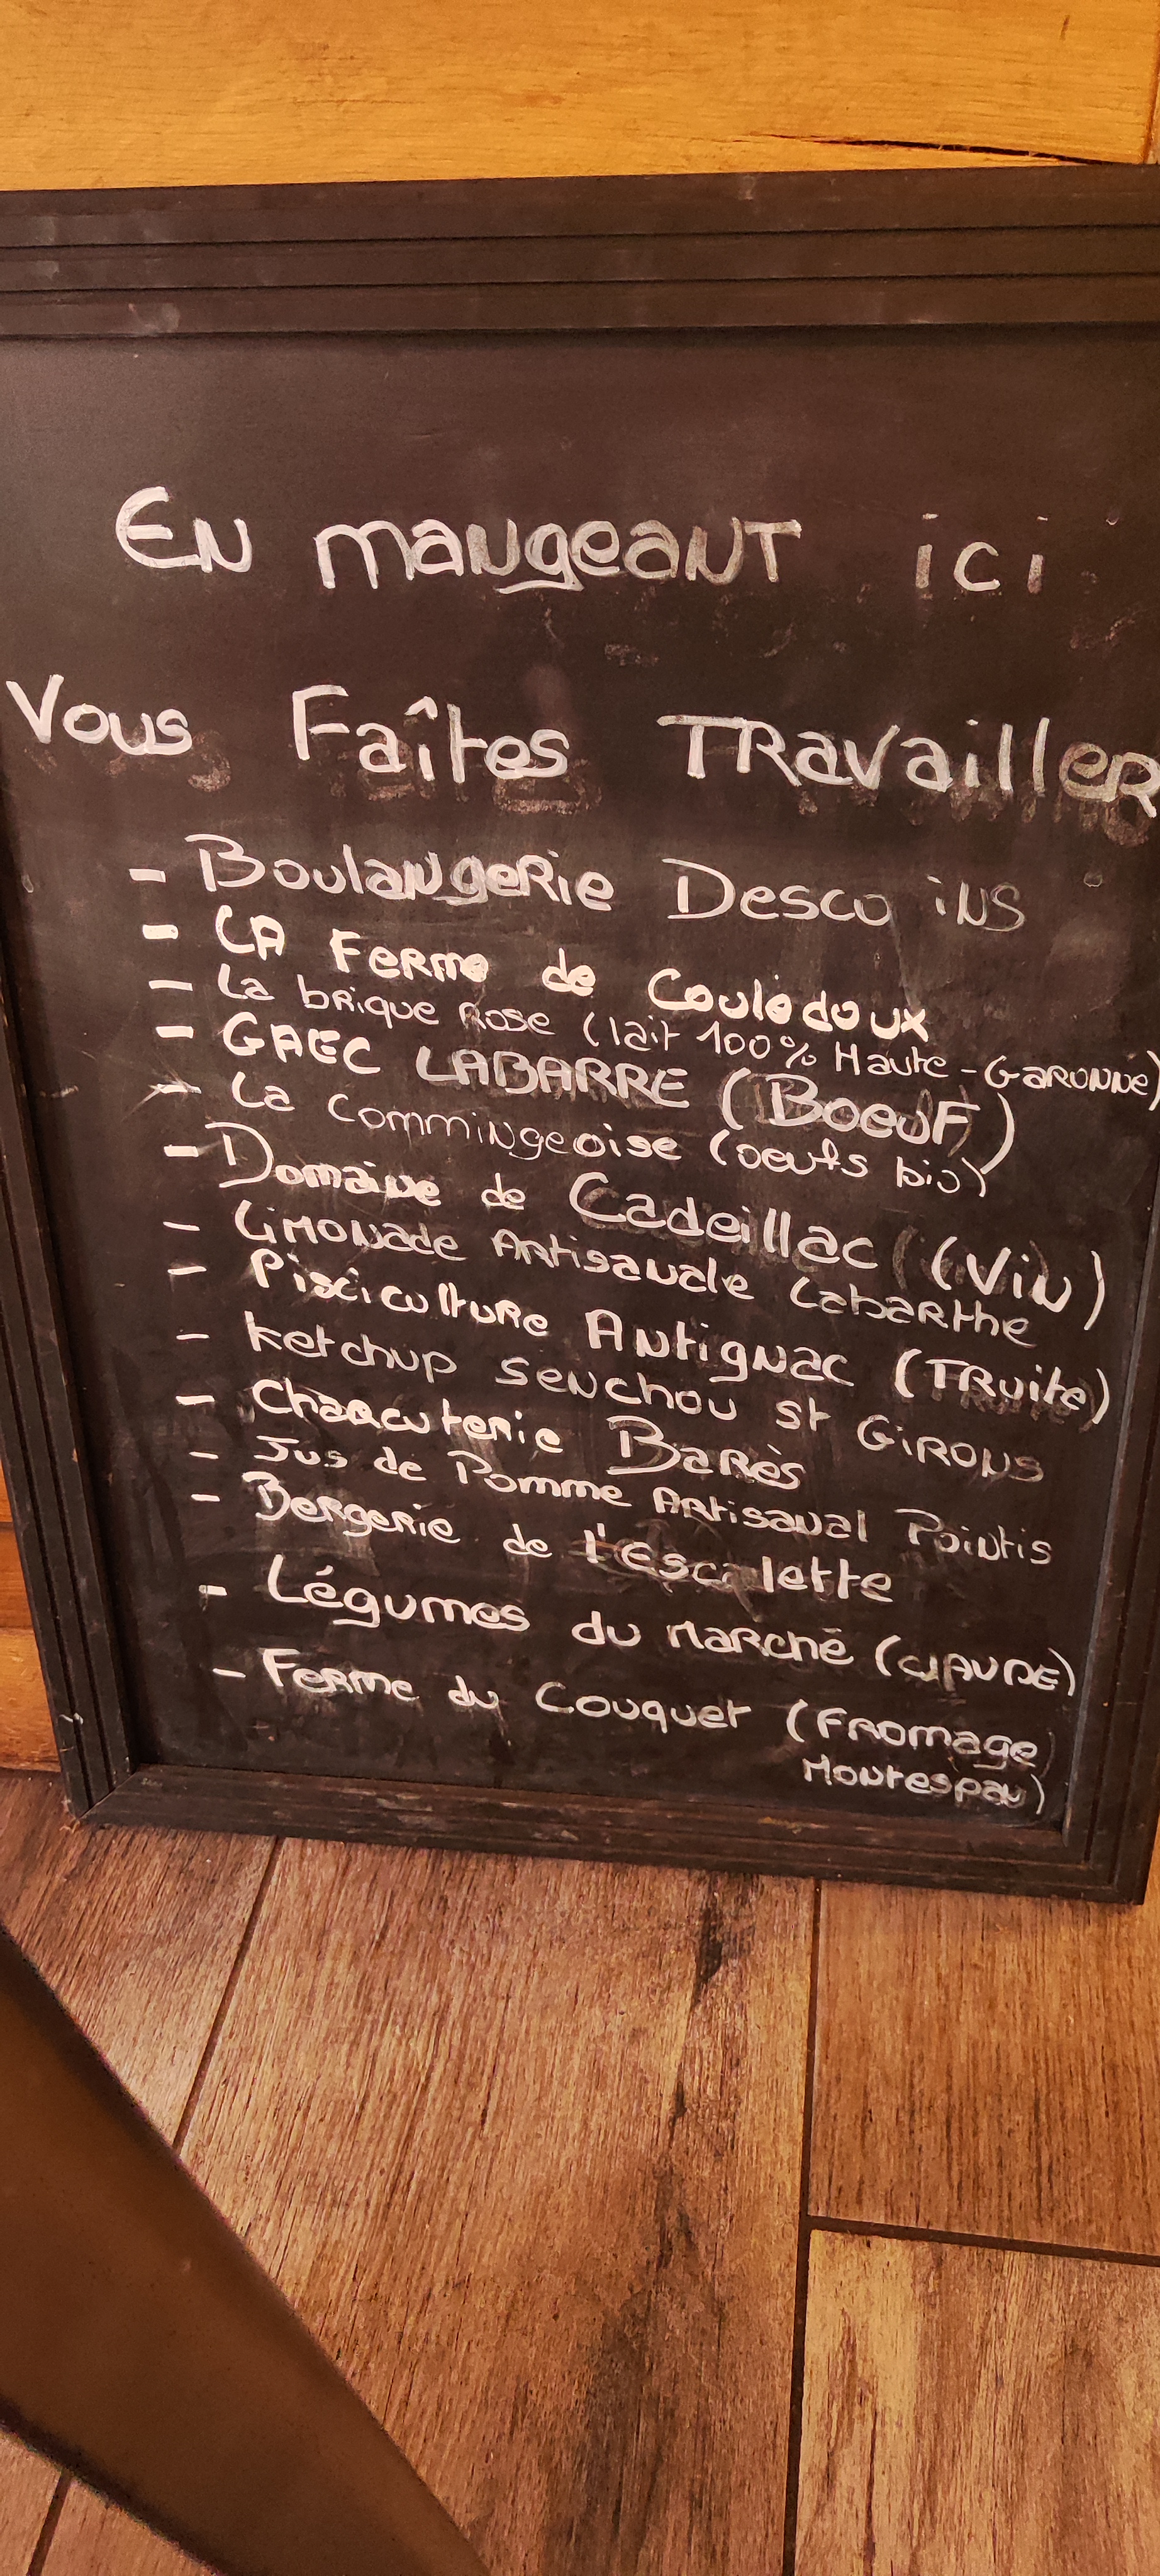 En mangeant ici
Vous Faîtes Travailler
- Boulangerie Descoins
- La Ferme de Coulédoux
- La brique Rose (lait 100% Haute-Garonne)
- GAEC LABARRE (Boeuf)
- La Commingeoise (oeufs bio)
- Domaine de Cadeillac (Vin)
- Limonade Artisanale Labarthe
- Pisciculture Antignac (Truite)
- Ketchup Senchou St Girons
- Charcuterie Barès
- Jus de Pomme Artisanal Pointis
- Bergerie de l'Escalette
- Légumes du Marché (CLAUDE)
- Ferme du Couquet (Fromage
Montespan)